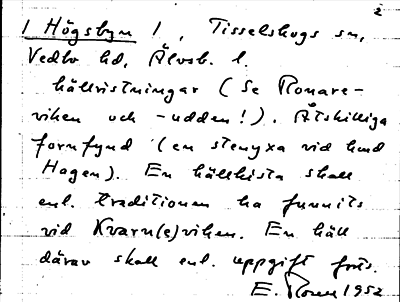 2
1 Högsbyn 1, Tisselskogs sn,
Vedbo hd, Älvsb. l.
hällristningar (Se Ronare-
viken och -udden!). Åtskilliga
fornfynd (en stenyxa vid
Hagen). En hällkista skall
enl. traditionen ha funnits
vid Kvarn(e)viken. En häll
därav skall enl. uppgift
E. 1952